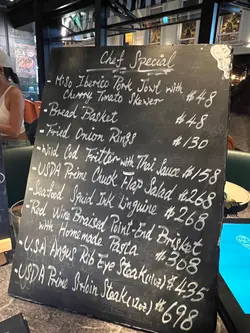 Chef Special
- Miso Iberico Pork Jowl with
Cherry Tomato Skewer $48
- Bread Basket $48
- Fried Onion Rings $130
- Wild Cod Fritter with Thai Sauce $158
- USDA Prime Chuck Flap Salad $268
- Seafood Squid Ink Linguine $268
- Red Wine Braised Point-End Brisket
with Homemade Pasta $308
- USA Angus Rib Eye Steak (11oz) $435
- USDA Prime Sirloin Steak (12oz) $698